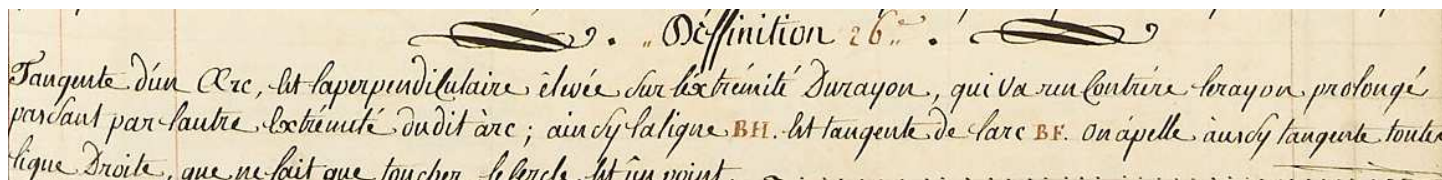 Déffinition 26.e
Tangente d'ún Arc, Est laperpendiculaire élevée sur l'éxtrémité Durayon, qui va rencontrére lerayon prolongé
passant par l'autre extrémité dudit àrc; ainsy laligne BH. Est tangente de l'arc BF. on ápelle àussy tangente toute
ligne Droite, que ne fait que toucher lecercle En ùn point